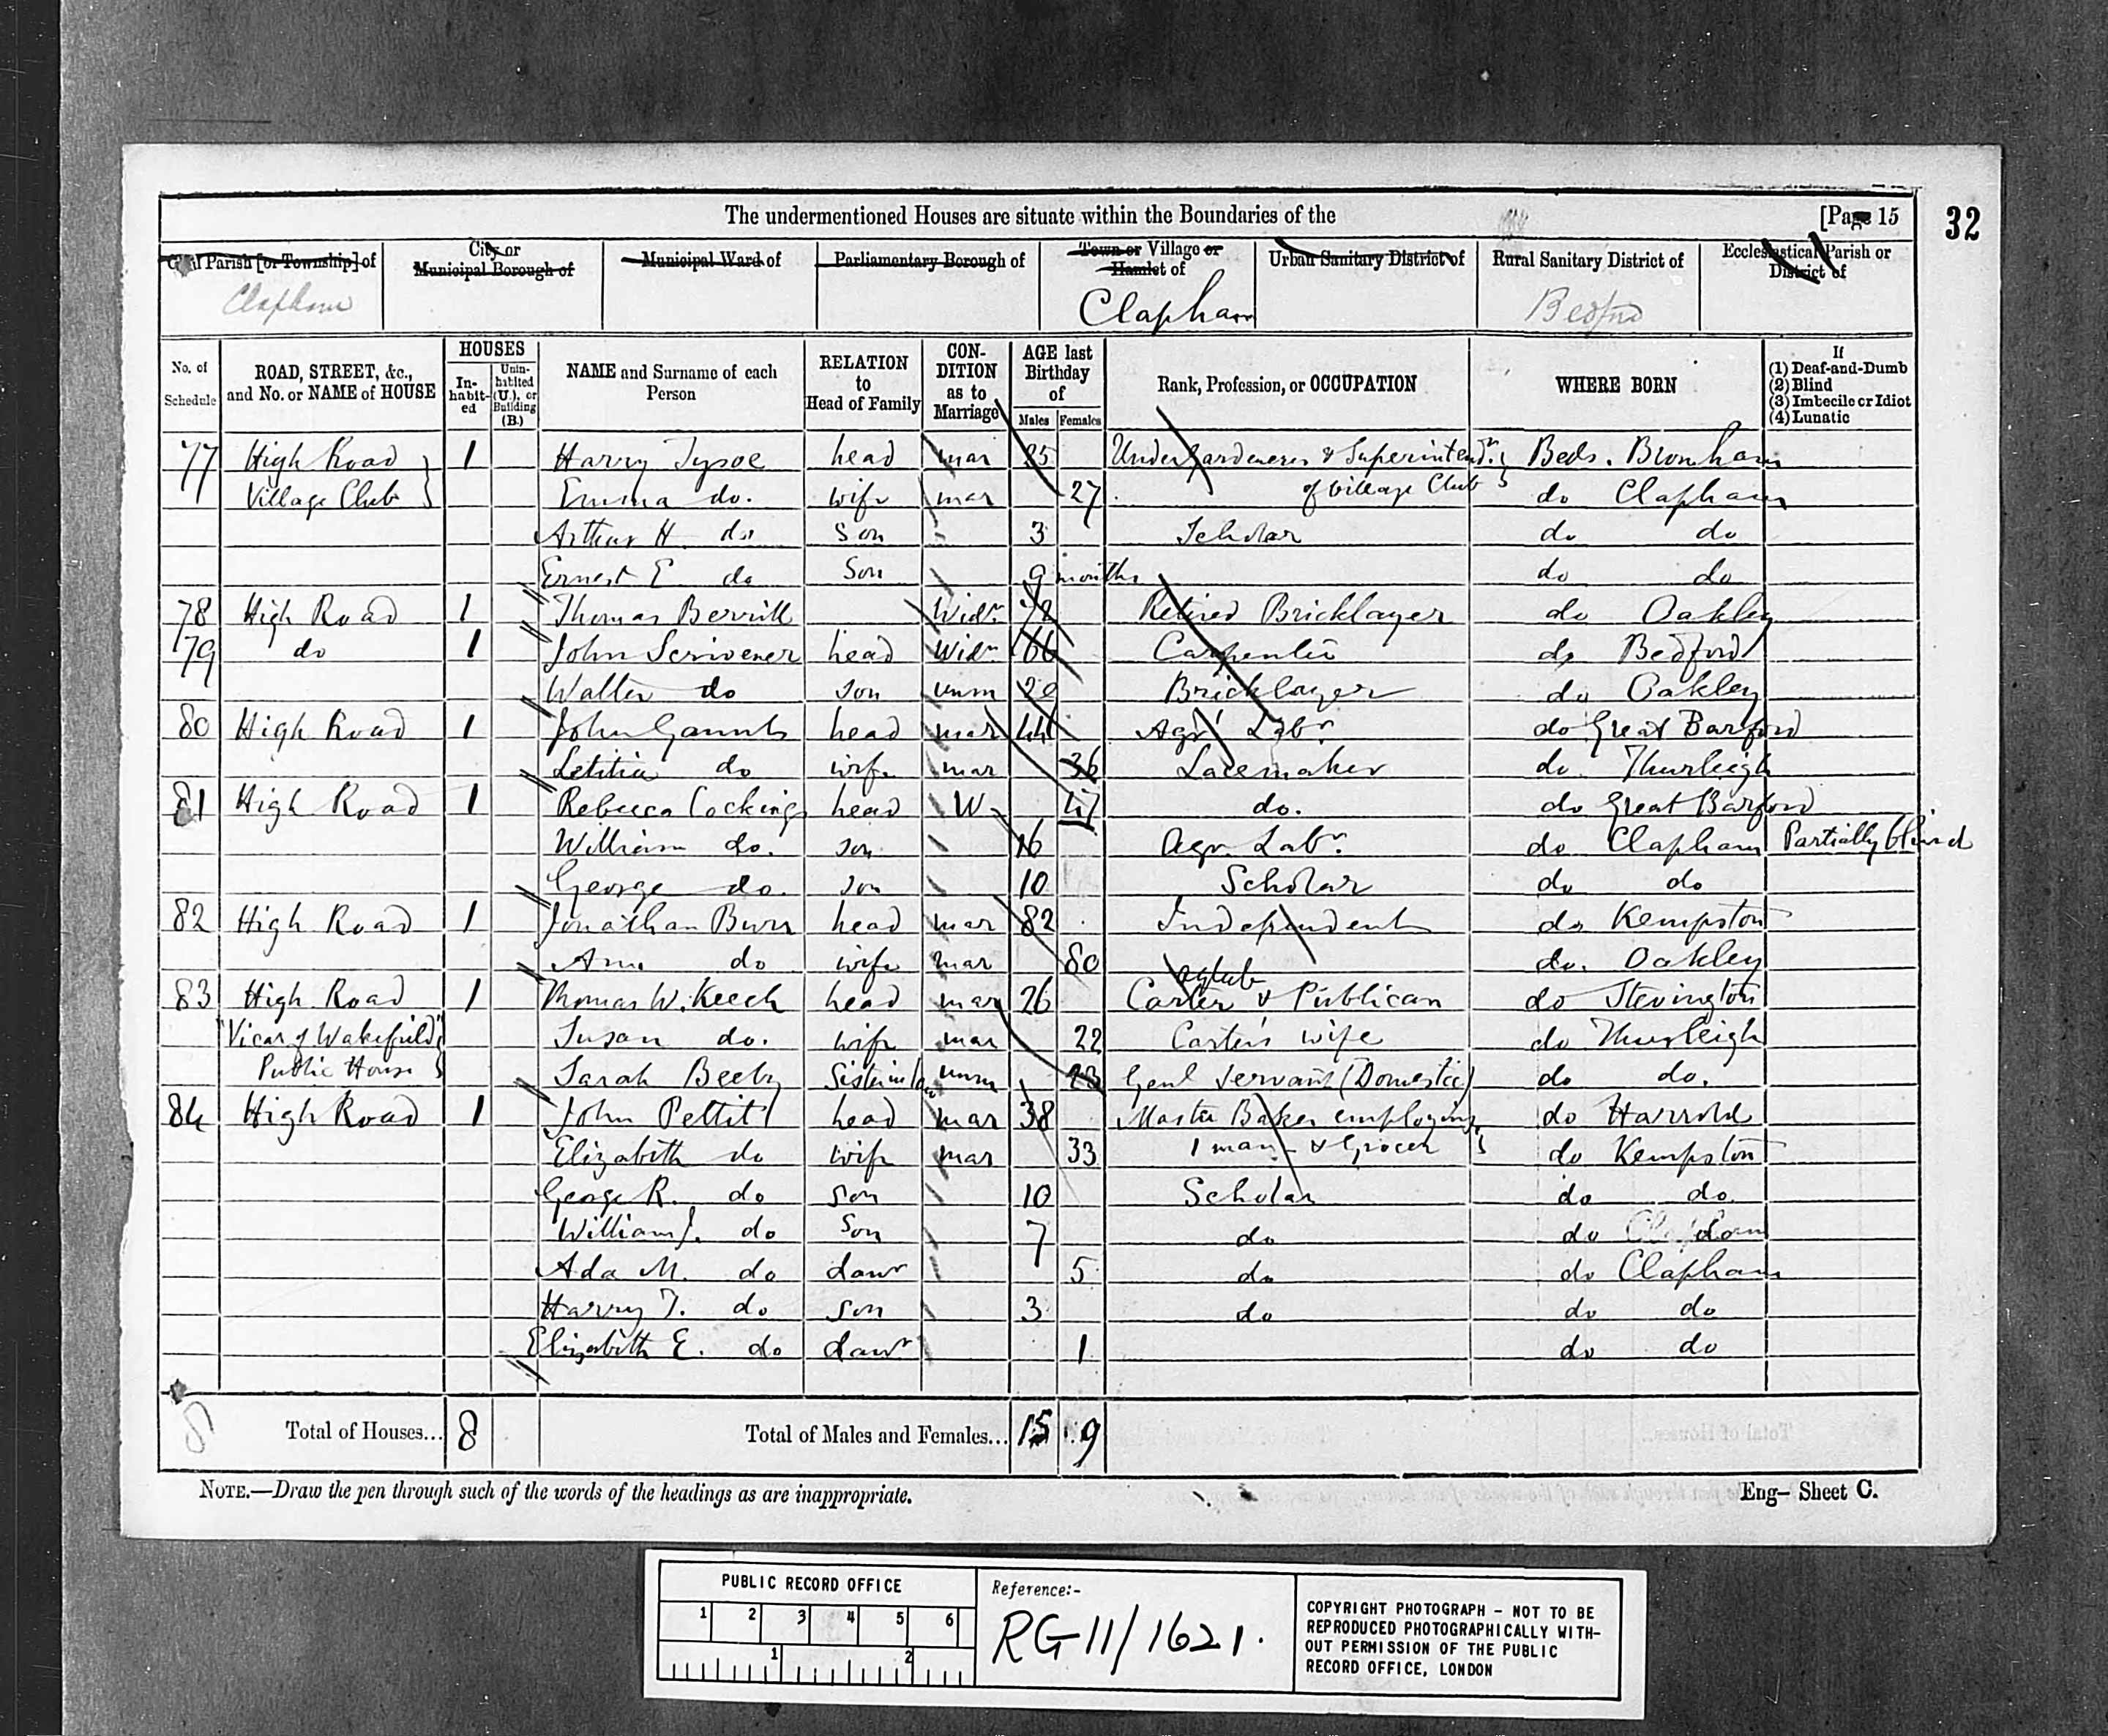 The undermentioned Houses are situate within the Boundaries of the [Page 15 32
Civil Parish [or Township] of City or Municipal Borough of Municipal Ward of Parliamentary Borough of Town or Village or Hamlet of Urban Sanitary District of Rural Sanitary District of Ecclesiastical Parish or District of
Clapham Clapham Bedford
No. of Schedule ROAD, STREET, &c., and No. or NAME of HOUSE HOUSES Inhabited Uninhabited (U.), or Building (B.) NAME and Surname of each Person RELATION to Head of Family CONDITION as to Marriage AGE last Birthday of Males Females Rank, Profession, or OCCUPATION WHERE BORN If (1) Deaf-and-Dumb (2) Blind (3) Imbecile or Idiot (4) Lunatic
77 High Road 1 Harry Tysoe head mar 25 Under Gardener & Superintendt. Beds. Bromham
Village Club Emma do. wife mar 27 of Village Club do Clapham
Arthur H. do son 3 Scholar do do
Ernest E do Son 9 months do do
78 High Road 1 Thomas Berrill Widr. 72 Retired Bricklayer do Oakley
79 do 1 John Scrivener head Widr 66 Carpenter do Bedford
Walter do son unm 20 Bricklayer do Oakley
80 High Road 1 John Gaunt head mar 44 Agr Labr do Great Barford
Letitia do wife mar 36 Lacemaker do. Thurleigh
81 High Road 1 Rebecca Cockings head W 47 do. do Great Barford
William do. son 16 Agr. Labr. do Clapham Partially blind
George do. son 10 Scholar do do
82 High Road 1 Jonathan Burr head mar 82 Independent do Kempston
Ann do wife mar 80 do. Oakley
83 High Road 1 Thomas W. Keech head mar 26 Carter & Publican do Stevington
"Vicar of Wakefield" Susan do. wife mar 22 Carter's wife do Thurleigh
Public House Sarah Beeby Sister in law unm 23 Genl Servant (Domestic) do do.
84 High Road 1 John Pettit head mar 38 Master Baker employing do Harrold
Elizabeth do wife mar 33 1 man & Grocer do Kempston
George R. do son 10 Scholar do do
William J. do Son 7 do do Clapham
Ada M. do daur 5 do do Clapham
Harry T. do son 3 do do do
Elizabeth E. do daur 1 do do
Total of Houses... 8 Total of Males and Females... 15 9
NOTE.—Draw the pen through such of the words of the headings as are inappropriate. Eng— Sheet C.
PUBLIC RECORD OFFICE
1 2 3 4 5 6
1 2
Reference:-
RG 11/1621.
COPYRIGHT PHOTOGRAPH - NOT TO BE
REPRODUCED PHOTOGRAPHICALLY WITH-
OUT PERMISSION OF THE PUBLIC
RECORD OFFICE, LONDON